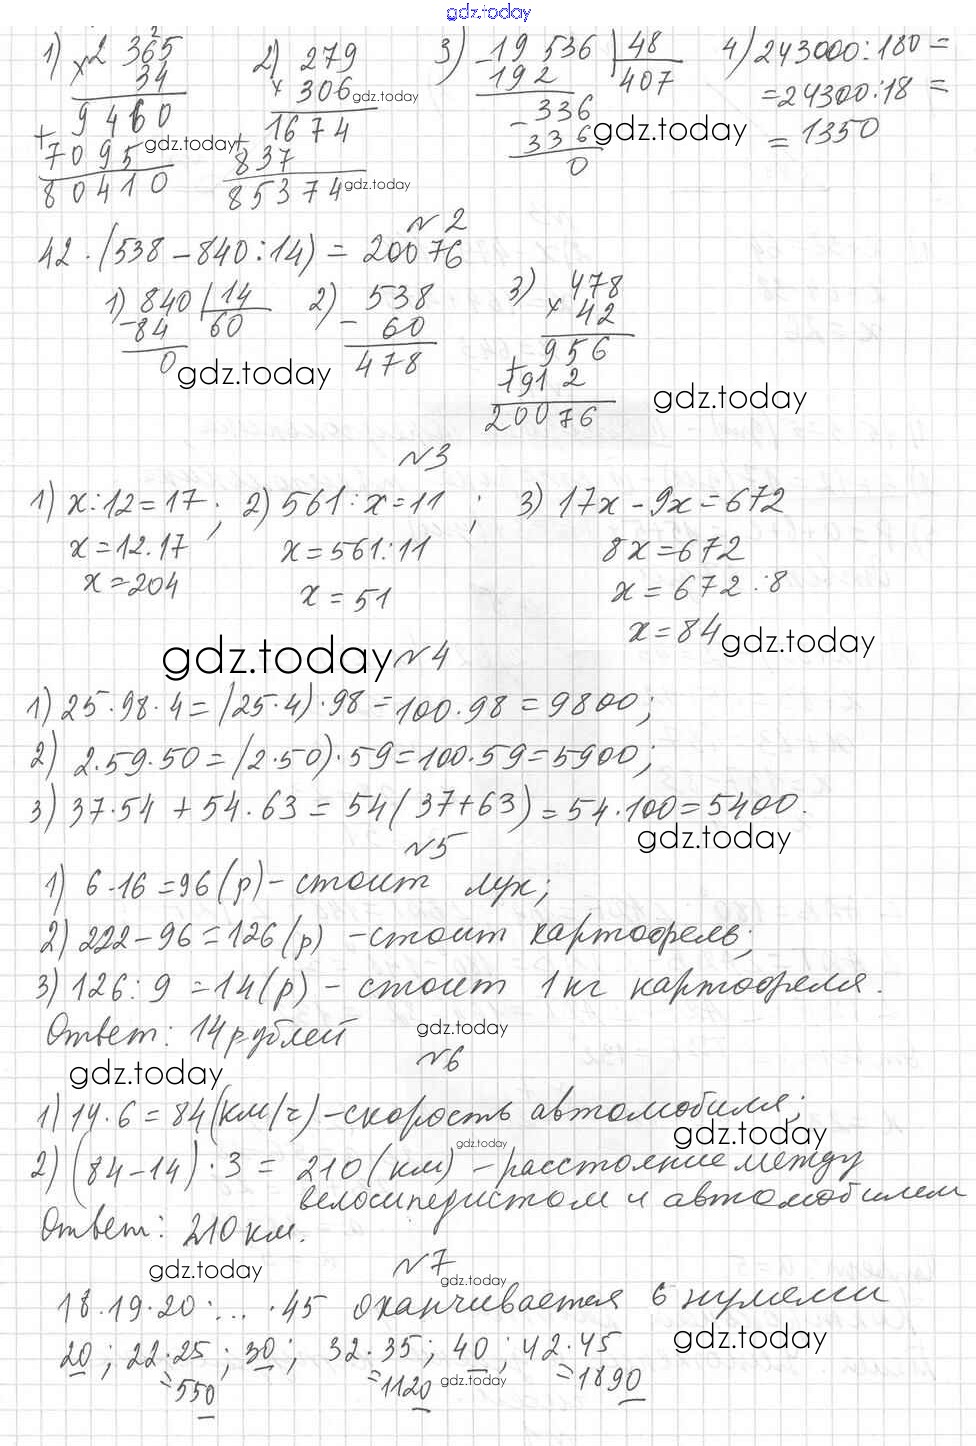 gdz.today
1) × 2 365   2) 279   3) 19 536 | 48   4) 243000:180 =
34   × 306   - 192   407   = 24300:18 =
+ 9460   1674   - 336   = 1350
7095   + 837   336
80410   85374   0
gdz.today gdz.today gdz.today
№2
42 · (538 - 840:14) = 20076
1) 840 | 14   2) 538   3) 478
- 84   60   - 60   × 42
0   478   956
+ 1912
20076
gdz.today gdz.today
№3
1) x:12=17; 2) 561:x=11; 3) 17x - 9x = 672
x=12·17   x=561:11   8x=672
x=204   x = 51   x = 672:8
x = 84
gdz.today
gdz.today №4
1) 25·98·4 = (25·4)·98 = 100·98 = 9800;
2) 2·59·50 = (2·50)·59 = 100·59 = 5900;
3) 37·54 + 54·63 = 54(37+63) = 54·100 = 5400.
gdz.today
№5
1) 6·16=96 (р) - стоит лук;
2) 222-96=126 (р) - стоит картофель;
3) 126:9=14 (р) - стоит 1кг картофеля.
Ответ: 14 рублей
gdz.today
№6
gdz.today
1) 14·6=84 (км/ч) - скорость автомобиля;
gdz.today
gdz.today
2) (84-14)·3 = 210 (км) - расстояние между
велосипедистом и автомобилем
Ответ: 210 км.
№7
gdz.today gdz.today
18·19·20·...·45 оканчивается 6 нулями
gdz.today
20; 22·25; 30; 32·35; 40; 42·45
=550   =1120   =1890
gdz.today